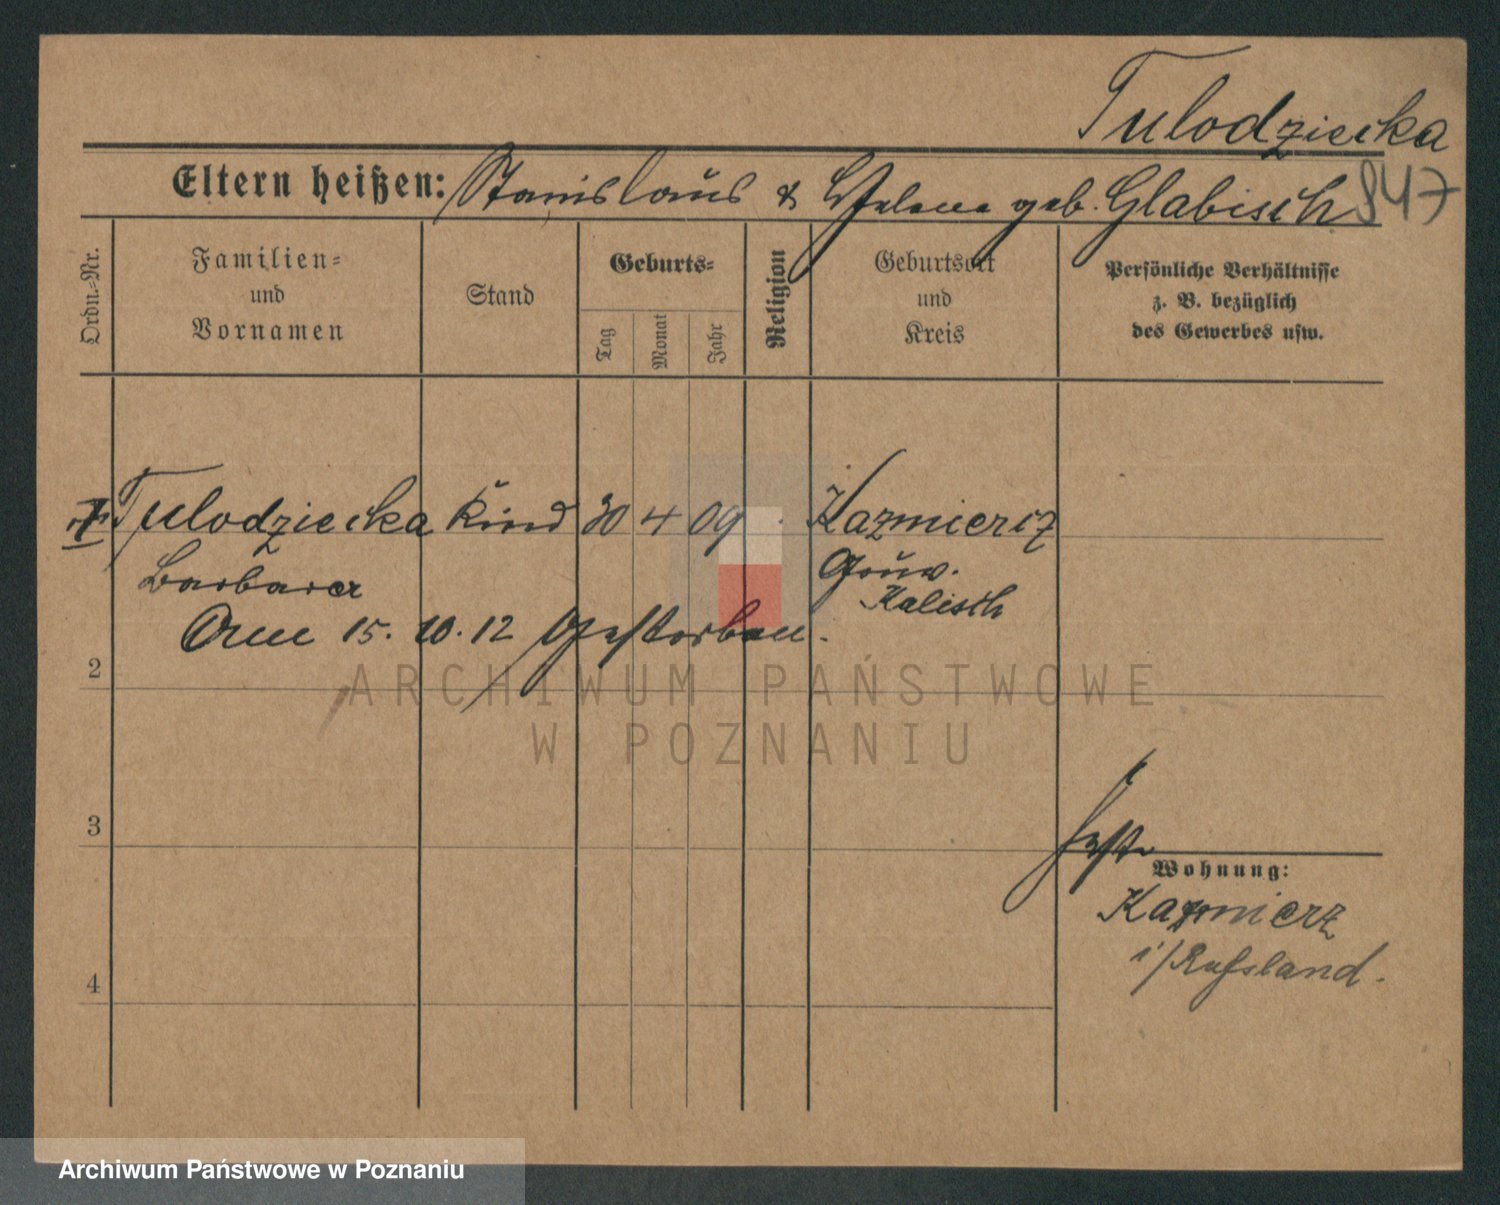 Tulodziecka
Eltern heißen: Stanislaus & Helene geb. Glabisch 847
Ordn.-Nr.
Familien-
und
Vornamen
Stand
Geburts-
Tag
Monat
Jahr
Religion
Geburtsort
und
Kreis
Persönliche Verhältnisse
z. B. bezüglich
des Gewerbes usw.
Tulodziecka Kind 30 4 09 Kazmierz
Barbara Gouv.
Kalisch
Am 15. 10. 12 gestorben.
2
ARCHIWUM PAŃSTWOWE
W POZNANIU
3
Wohnung:
Kazmierz
i/Rußland.
4
Archiwum Państwowe w Poznaniu